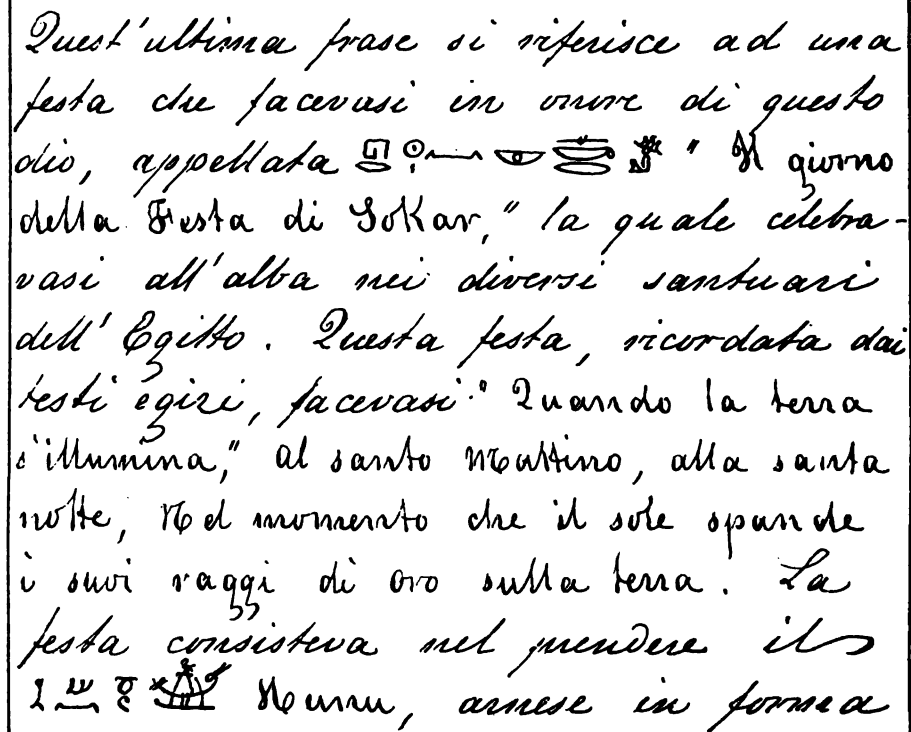 Quest'ultima frase si riferisce ad una
festa che facevasi in onore di questo
dio, appellata " Il giorno
della Festa di Sokar," la quale celebra-
vasi all'alba nei diversi santuari
dell'Egitto. Questa festa, ricordata dai
testi egizi, facevasi "Quando la terra
s'illumina," al santo mattino, alla santa
notte, Nel momento che il sole spande
i suoi raggi di oro sulla terra. La
festa consisteva nel prendere il
Hennu, arnese in forma